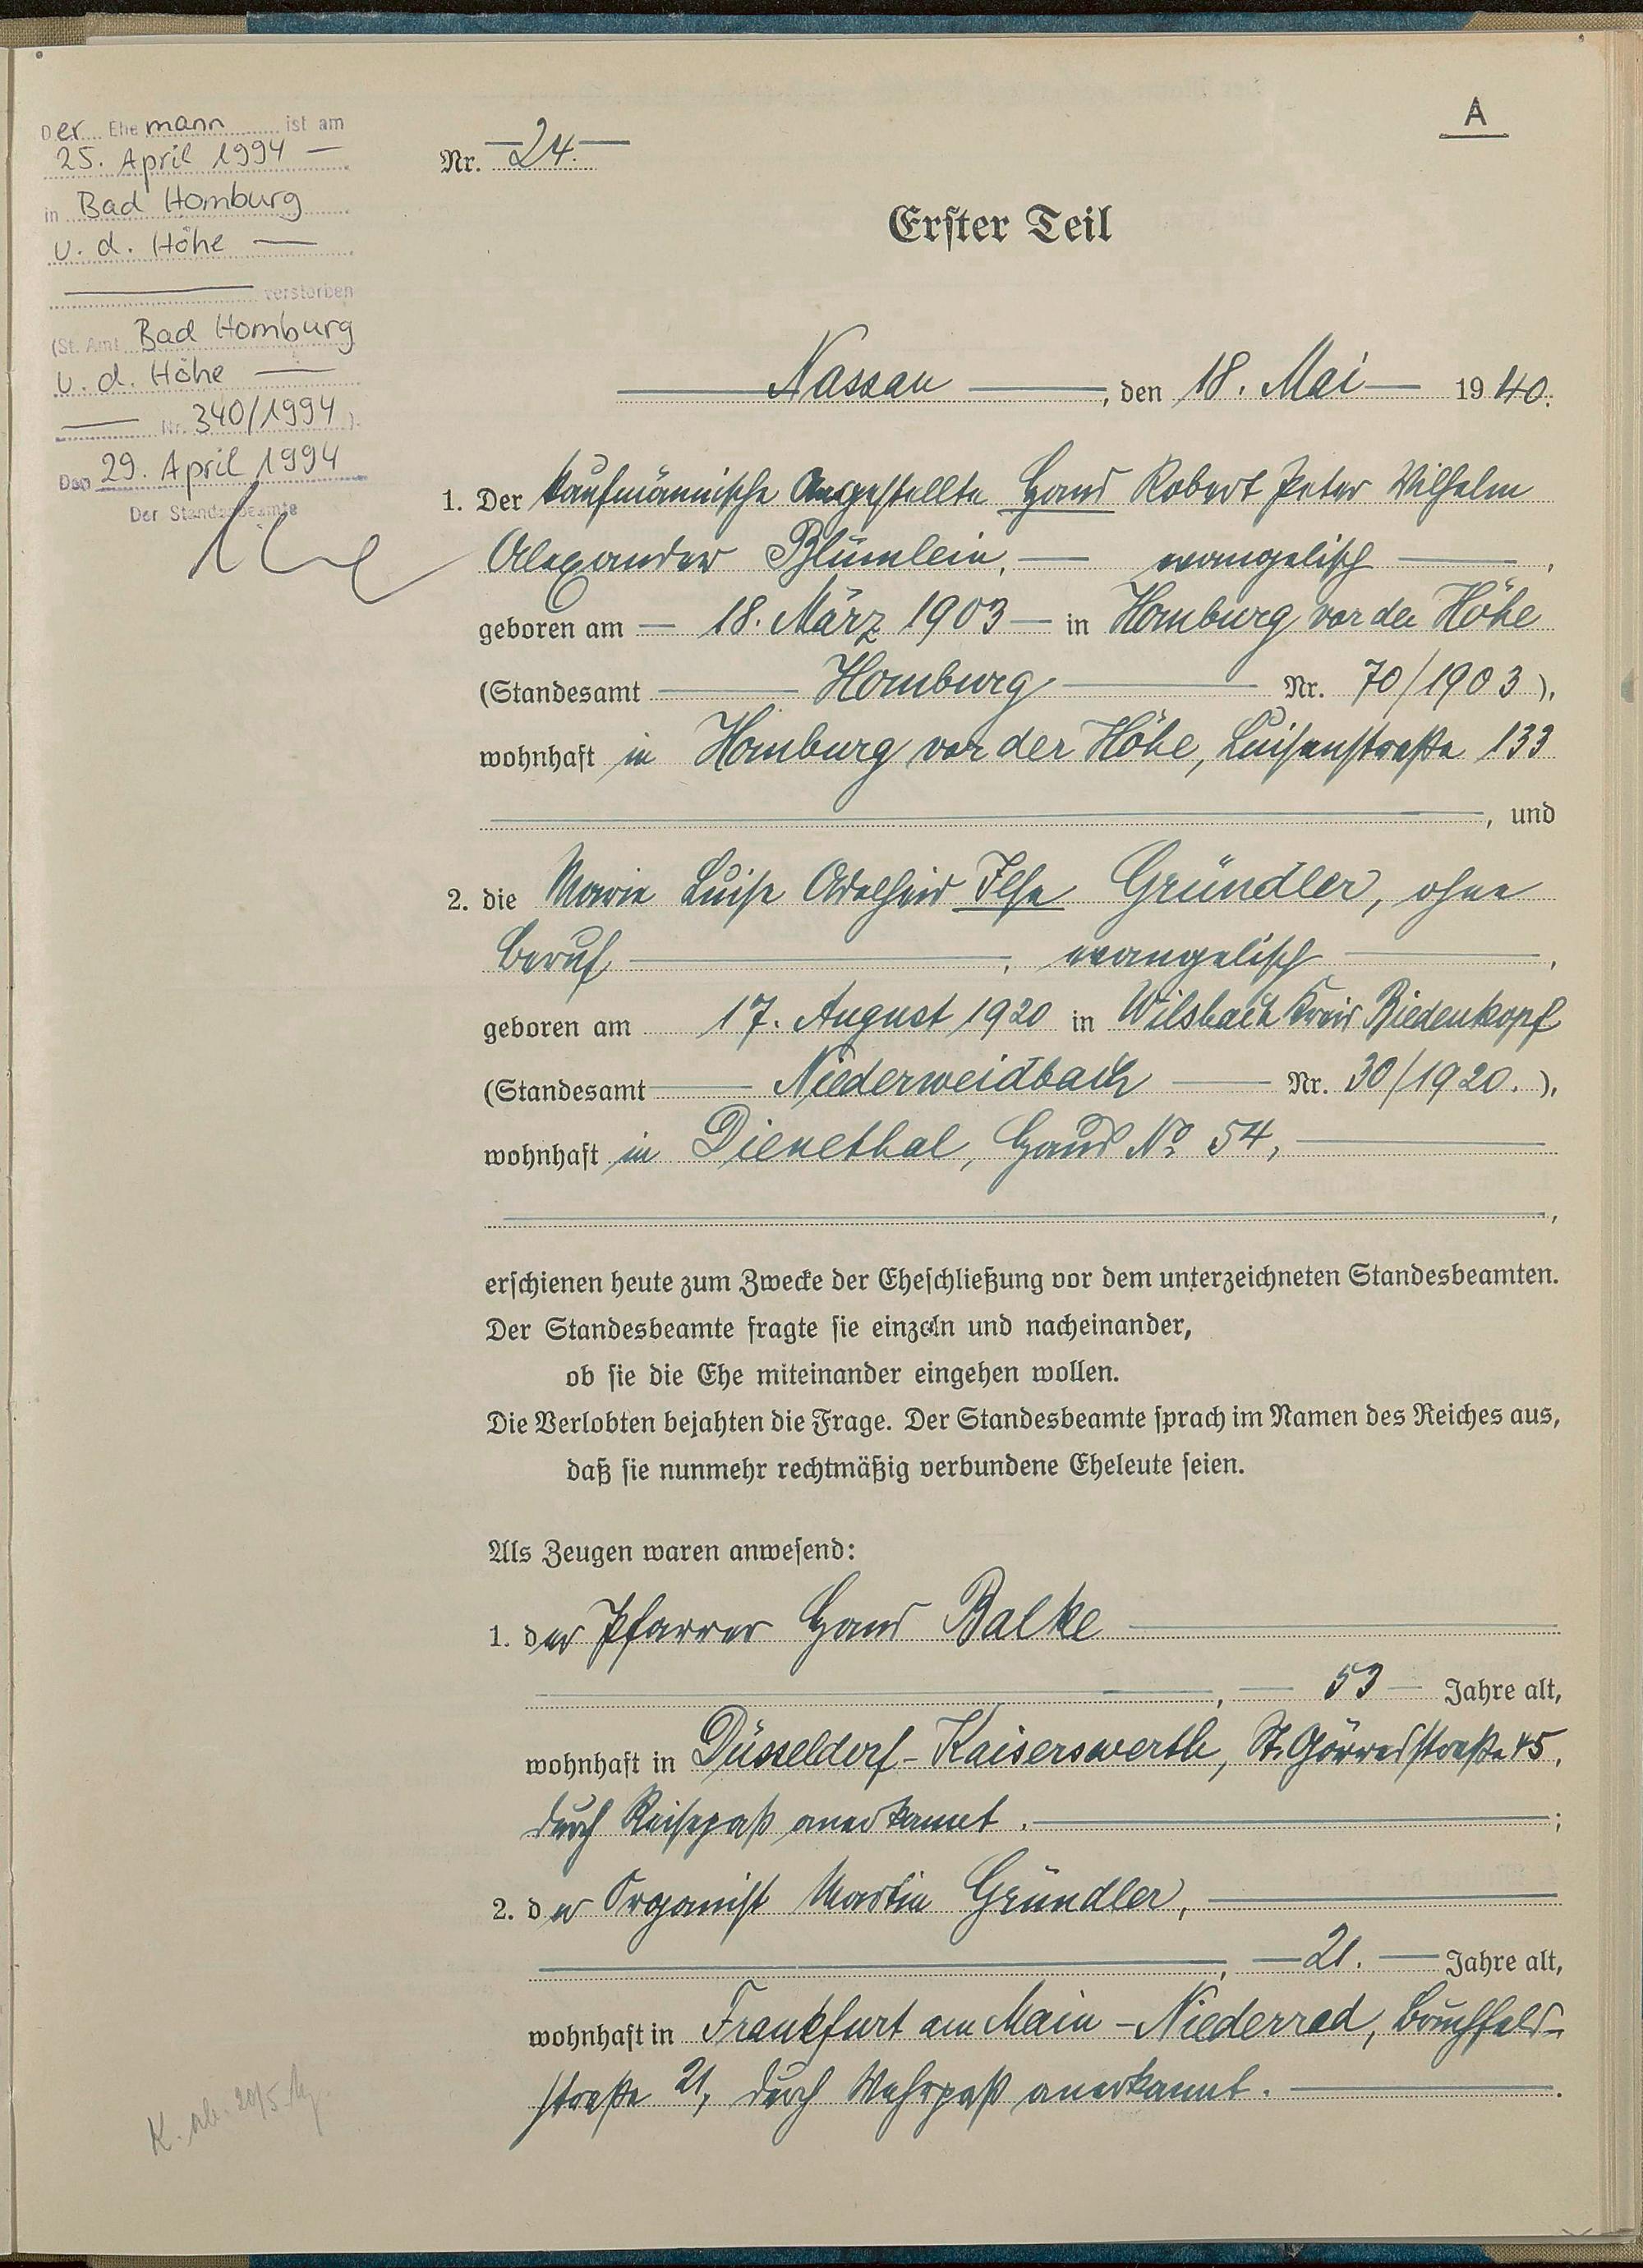 A
Der Ehemann ist am
25. April 1994 —
in Bad Homburg
v. d. Höhe —
verstorben
(St. Amt Bad Homburg
v. d. Höhe —
— Nr. 340/1994).
Den 29. April 1994
Der Standesbeamte
Nr. — 24. —
Erster Teil
Nassau —, den 18. Mai — 1940.
1. Der kaufmännische Angestellte Hans Robert Peter Wilhelm
Alexander Blümlein, — evangelisch —,
geboren am — 18. März 1903 — in Homburg vor der Höhe
(Standesamt — Homburg — Nr. 70/1903),
wohnhaft in Homburg vor der Höhe, Luisenstraße 133
—, und
2. die Marie Luise Adelheid Ilse Gründler, ohne
Beruf —, evangelisch —,
geboren am 17. August 1920 in Wilsbach Kreis Biedenkopf
(Standesamt — Niederweidbach — Nr. 30/1920.),
wohnhaft in Dienethal, Haus No 54, —
—,
erschienen heute zum Zwecke der Eheschließung vor dem unterzeichneten Standesbeamten.
Der Standesbeamte fragte sie einzeln und nacheinander,
ob sie die Ehe miteinander eingehen wollen.
Die Verlobten bejahten die Frage. Der Standesbeamte sprach im Namen des Reiches aus,
daß sie nunmehr rechtmäßig verbundene Eheleute seien.
Als Zeugen waren anwesend:
1. der Pfarrer Hans Balke —
—, — 53 — Jahre alt,
wohnhaft in Düsseldorf-Kaiserswerth, St. Görresstraße 45,
durch Reisepaß anerkannt. —;
2. der Organist Martin Gründler, —
—, — 21. — Jahre alt,
wohnhaft in Frankfurt am Main - Niederrad, Bruchfeld-
straße 21, durch Wehrpaß anerkannt. —.